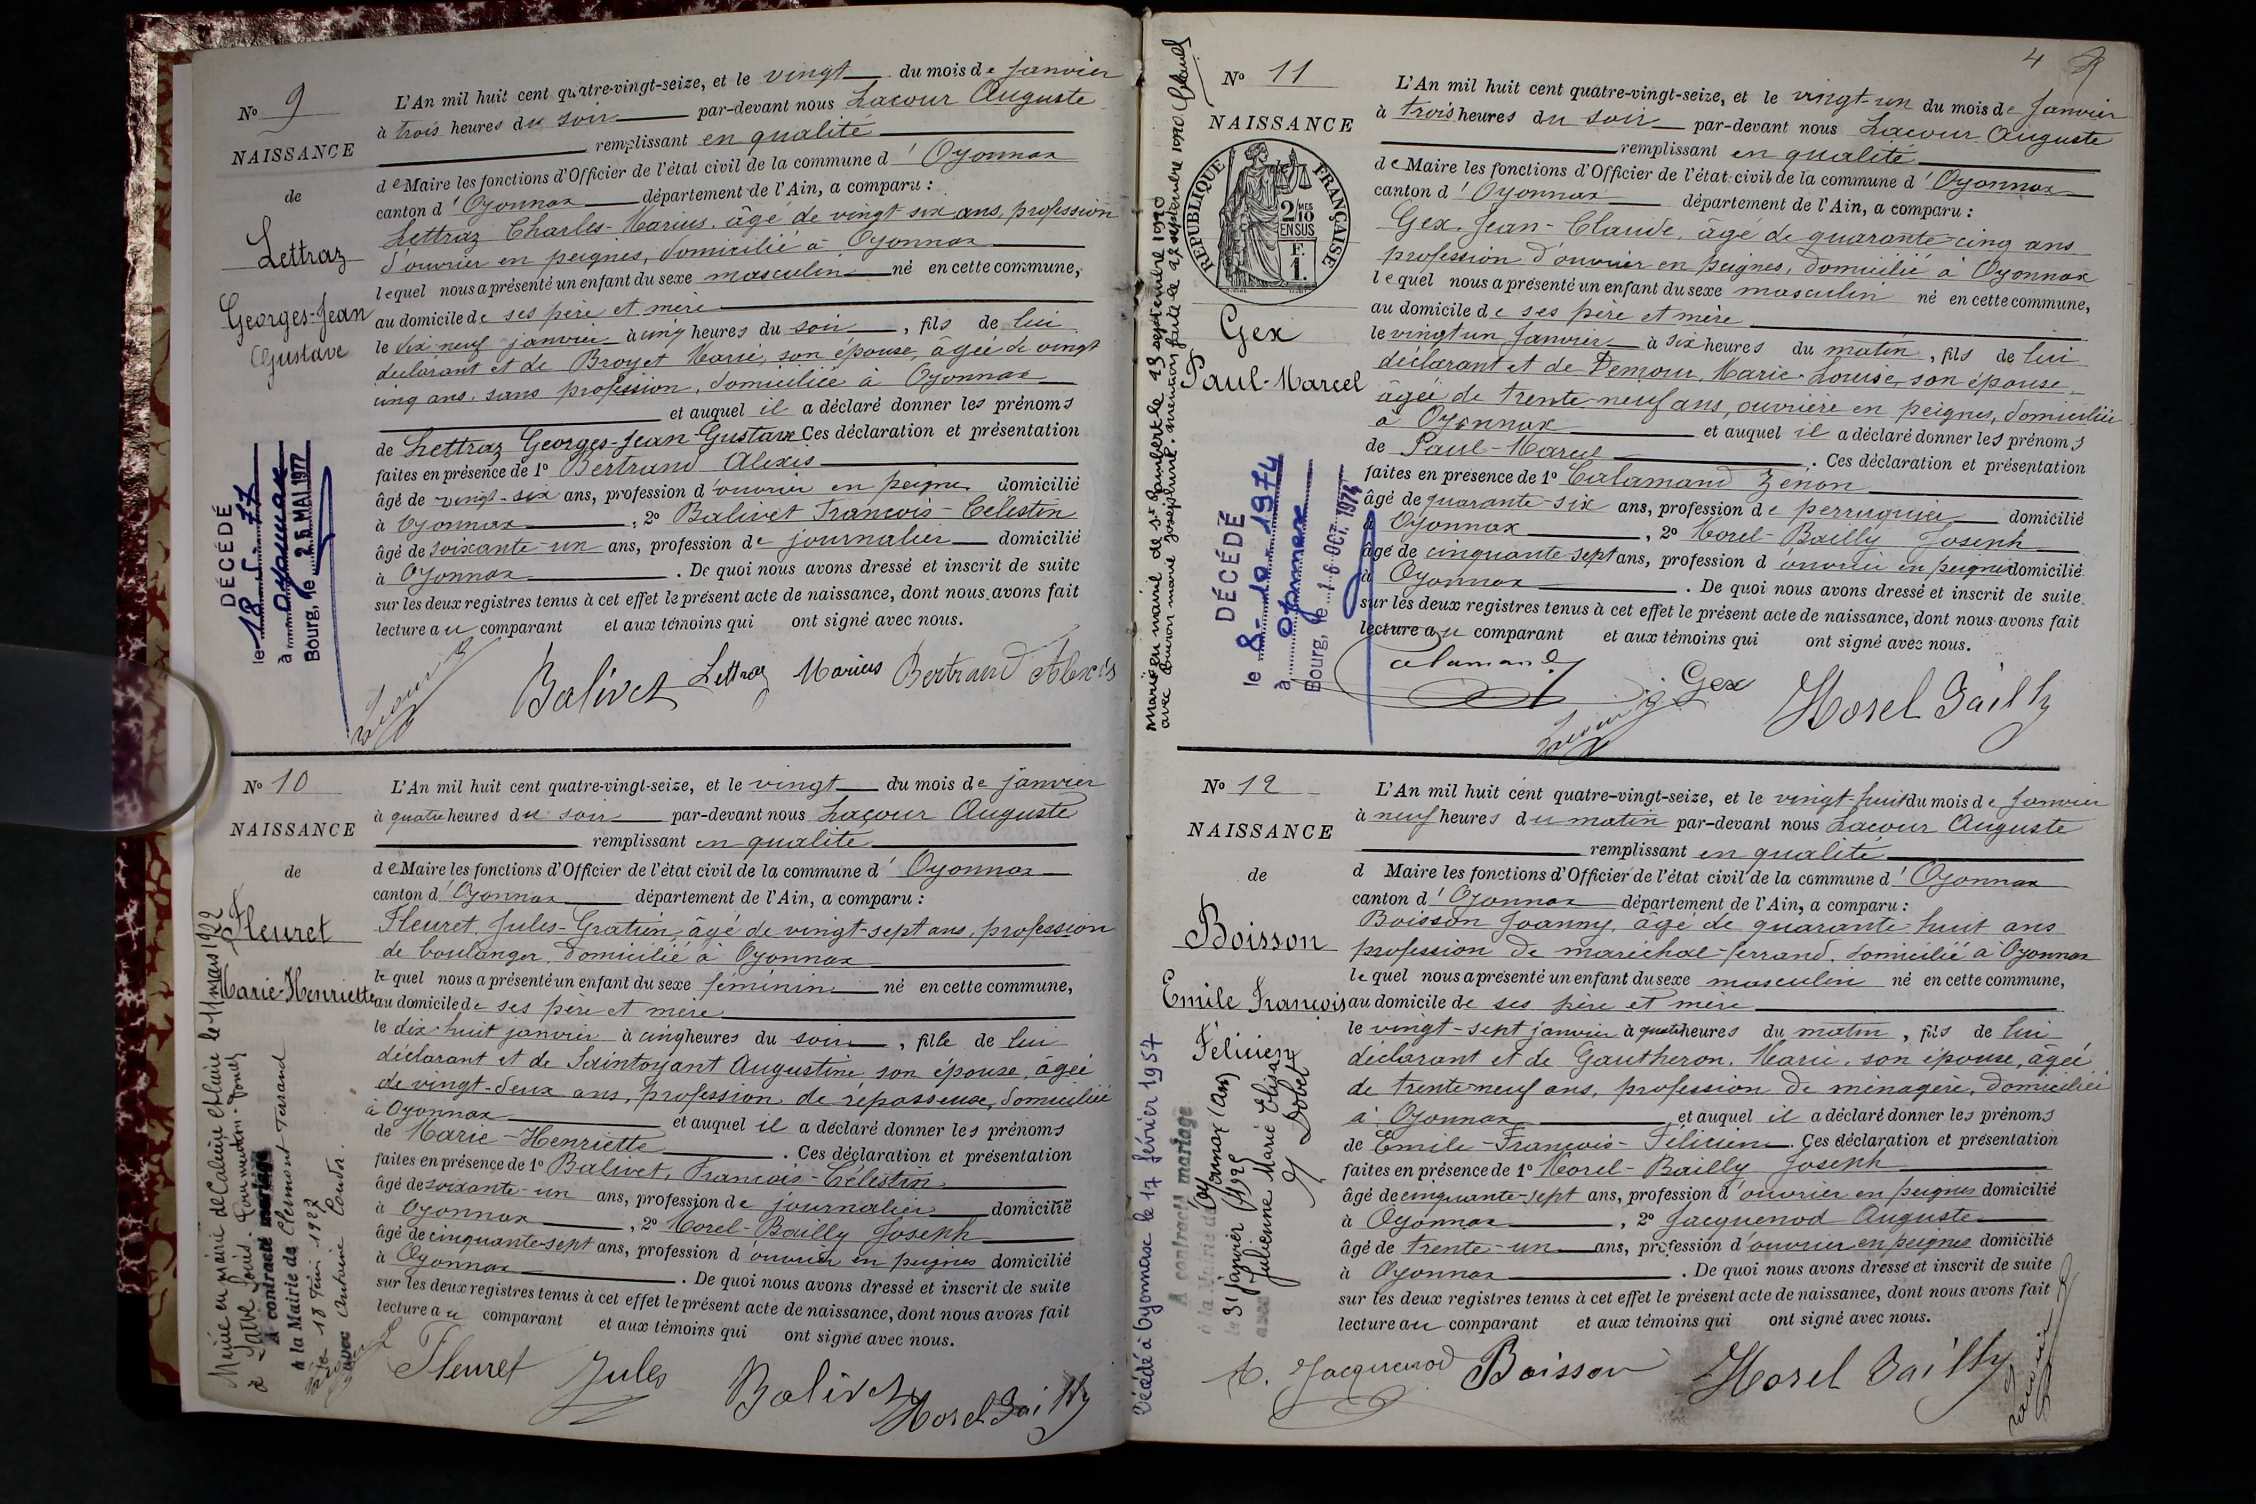 N° 9
NAISSANCE
de
Lettraz
Georges-Jean
Gustave
L'An mil huit cent quatre-vingt-seize, et le vingt du mois de janvier
à trois heures du soir par-devant nous Lacour Auguste
remplissant en qualité
de Maire les fonctions d'Officier de l'état civil de la commune d'Oyonnax
canton d'Oyonnax département de l'Ain, a comparu :
Lettraz Charles-Marius, âgé de vingt six ans, profession
d'ouvrier en peignes, domicilié à Oyonnax
lequel nous a présenté un enfant du sexe masculin né en cette commune,
au domicile de ses père et mère
le dix neuf janvier à cinq heures du soir, fils de lui
déclarant et de Broyet Marie, son épouse, âgée de vingt
cinq ans, sans profession, domiciliée à Oyonnax
et auquel il a déclaré donner les prénoms
de Lettraz Georges-Jean-Gustave Ces déclaration et présentation
faites en présence de 1° Bertrand Alexis
âgé de vingt-six ans, profession d'ouvrier en peignes domicilié
à Oyonnax, 2° Balivet Francois-Célestin
âgé de soixante-un ans, profession de journalier domicilié
à Oyonnax. De quoi nous avons dressé et inscrit de suite
sur les deux registres tenus à cet effet le présent acte de naissance, dont nous avons fait
lecture au comparant et aux témoins qui ont signé avec nous.
Lacour Balivet Lettraz Marius Bertrand Alexis
DÉCÉDÉ
le 18 5 77
à Oyonnax
Bourg, le 25 MAI 1977
N° 10
NAISSANCE
de
Fleuret
Marie-Henriette
L'An mil huit cent quatre-vingt-seize, et le vingt du mois de janvier
à quatre heures du soir par-devant nous Lacour Auguste
remplissant en qualité
de Maire les fonctions d'Officier de l'état civil de la commune d'Oyonnax
canton d'Oyonnax département de l'Ain, a comparu :
Fleuret, Jules-Gratien, âgé de vingt-sept ans, profession
de boulanger, domicilié à Oyonnax
lequel nous a présenté un enfant du sexe féminin né en cette commune,
au domicile de ses père et mère
le dix-huit janvier à cinq heures du soir, fille de lui
déclarant et de Saintoyant Augustine, son épouse, âgée
de vingt-deux ans, profession de repasseuse, domiciliée
à Oyonnax et auquel il a déclaré donner les prénoms
de Marie-Henriette. Ces déclaration et présentation
faites en présence de 1° Balivet, Francois-Célestin
âgé de soixante-un ans, profession de journalier domicilié
à Oyonnax, 2° Morel-Bailly Joseph
âgé de cinquante-sept ans, profession d'ouvrier en peignes domicilié
à Oyonnax. De quoi nous avons dressé et inscrit de suite
sur les deux registres tenus à cet effet le présent acte de naissance, dont nous avons fait
lecture au comparant et aux témoins qui ont signé avec nous.
Fleuret Jules Balivet Morel Bailly
en mairie de Caluire et Cuire le 11 mars 1922
à Louis
A contracté mariage
à la Mairie de Clermont Ferrand
le 18 1927
avec Antoine
N° 11
NAISSANCE
RÉPUBLIQUE FRANÇAISE
2/10 MES
EN SUS
F.
1.
Gex
Paul-Marcel
4
L'An mil huit cent quatre-vingt-seize, et le vingt-un du mois de janvier
à trois heures du soir par-devant nous Lacour Auguste
remplissant en qualité
de Maire les fonctions d'Officier de l'état civil de la commune d'Oyonnax
canton d'Oyonnax département de l'Ain, a comparu :
Gex, Jean-Claude, âgé de quarante-cinq ans
profession d'ouvrier en peignes, domicilié à Oyonnax
lequel nous a présenté un enfant du sexe masculin né en cette commune,
au domicile de ses père et mère
le vingt un janvier à six heures du matin, fils de lui
déclarant et de Demour, Marie-Louise, son épouse
âgée de trente-neuf ans, ouvrière en peignes, domiciliée
à Oyonnax et auquel il a déclaré donner les prénoms
de Paul-Marcel. Ces déclaration et présentation
faites en présence de 1° Calamand Zenon
âgé de quarante-six ans, profession de perruquier domicilié
à Oyonnax, 2° Morel-Bailly Joseph
âgé de cinquante-sept ans, profession d'ouvrier en peignes domicilié
à Oyonnax. De quoi nous avons dressé et inscrit de suite
sur les deux registres tenus à cet effet le présent acte de naissance, dont nous avons fait
lecture au comparant et aux témoins qui ont signé avec nous.
Calamand Lacour Gex Morel Bailly
Marié en mairie de St Rambert le 13 septembre 1920
avec Marie Joséphine. mention faite le 22 septembre 1920
DÉCÉDÉ
le 8-10-1974
à Oyonnax
Bourg, le 16 OCT. 1974
N° 12
NAISSANCE
de
Boisson
Emile Francois
Félicien
L'An mil huit cent quatre-vingt-seize, et le vingt-huit du mois de janvier
à neuf heures du matin par-devant nous Lacour Auguste
remplissant en qualité
d Maire les fonctions d'Officier de l'état civil de la commune d'Oyonnax
canton d'Oyonnax département de l'Ain, a comparu :
Boisson Joanny, âgé de quarante-huit ans
profession de maréchal-ferrand, domicilié à Oyonnax
lequel nous a présenté un enfant du sexe masculin né en cette commune,
au domicile de ses père et mère
le vingt-sept janvier à quatre heures du matin, fils de lui
déclarant et de Gautheron, Marie, son épouse, âgée
de trente-neuf ans, profession de ménagère, domiciliée
à Oyonnax et auquel il a déclaré donner les prénoms
de Emile-Francois-Félicien. Ces déclaration et présentation
faites en présence de 1° Morel-Bailly Joseph
âgé de cinquante-sept ans, profession d'ouvrier en peignes domicilié
à Oyonnax, 2° Jacquenod Auguste
âgé de trente-un ans, profession d'ouvrier en peignes domicilié
à Oyonnax. De quoi nous avons dressé et inscrit de suite
sur les deux registres tenus à cet effet le présent acte de naissance, dont nous avons fait
lecture au comparant et aux témoins qui ont signé avec nous.
A. Jacquenod Boisson Morel Bailly Lacour
Décédé à Oyonnax le 17 février 1957
A contracté mariage
à la Mairie de Oyonnax (Ain)
le 31 janvier 1925
avec Julienne Marie Elisa
Dobet